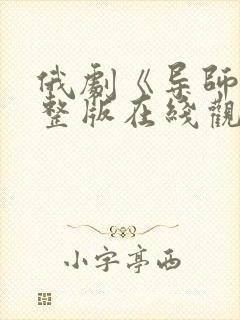 俄劇《導師
整版在綫觀
小字亭西